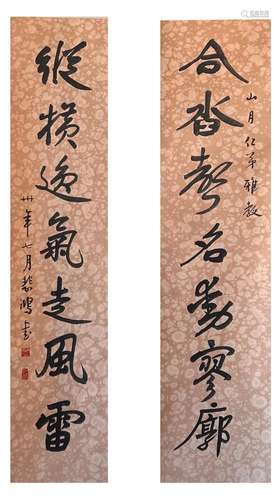 合沓聲名動寥廓
山月仁弟雅教
縱橫逸氣走風雷
卅年七月悲鴻書